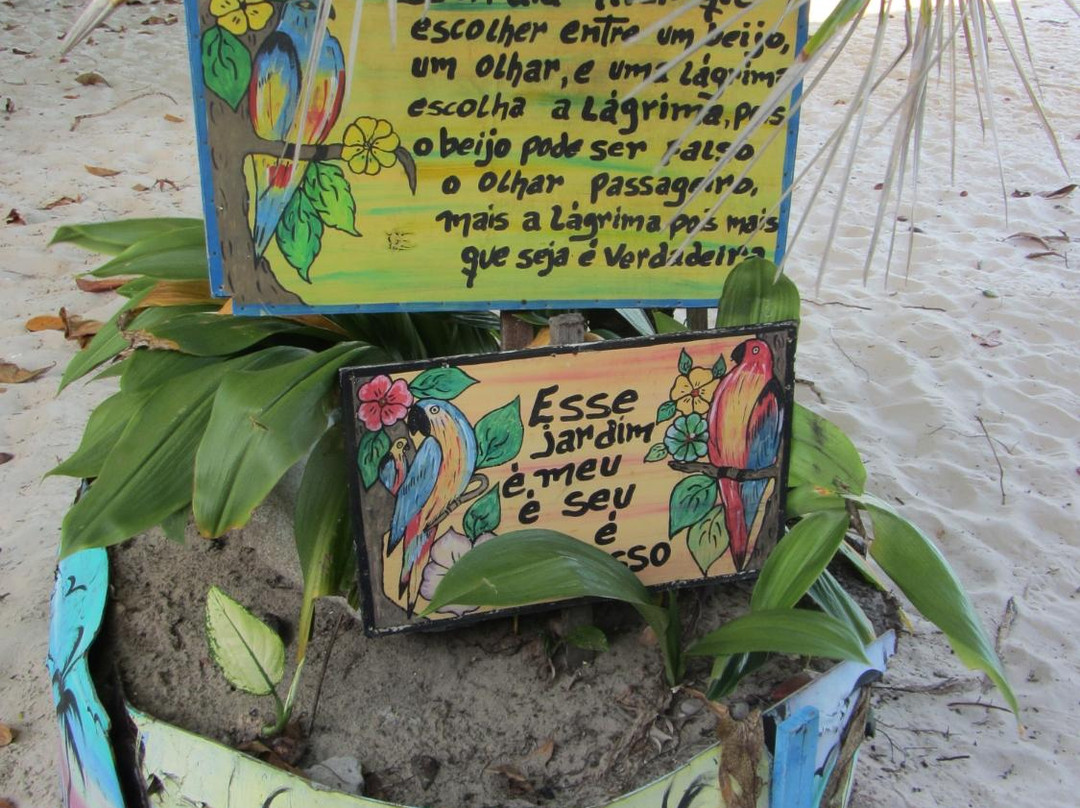 escolher entre um beijo,
um olhar, e uma lágrima
escolha a Lágrima, pois
o beijo pode ser falso
o olhar passageiro,
mais a Lágrima pois mais
que seja é verdadeira
Esse
jardim
é meu
é seu
é